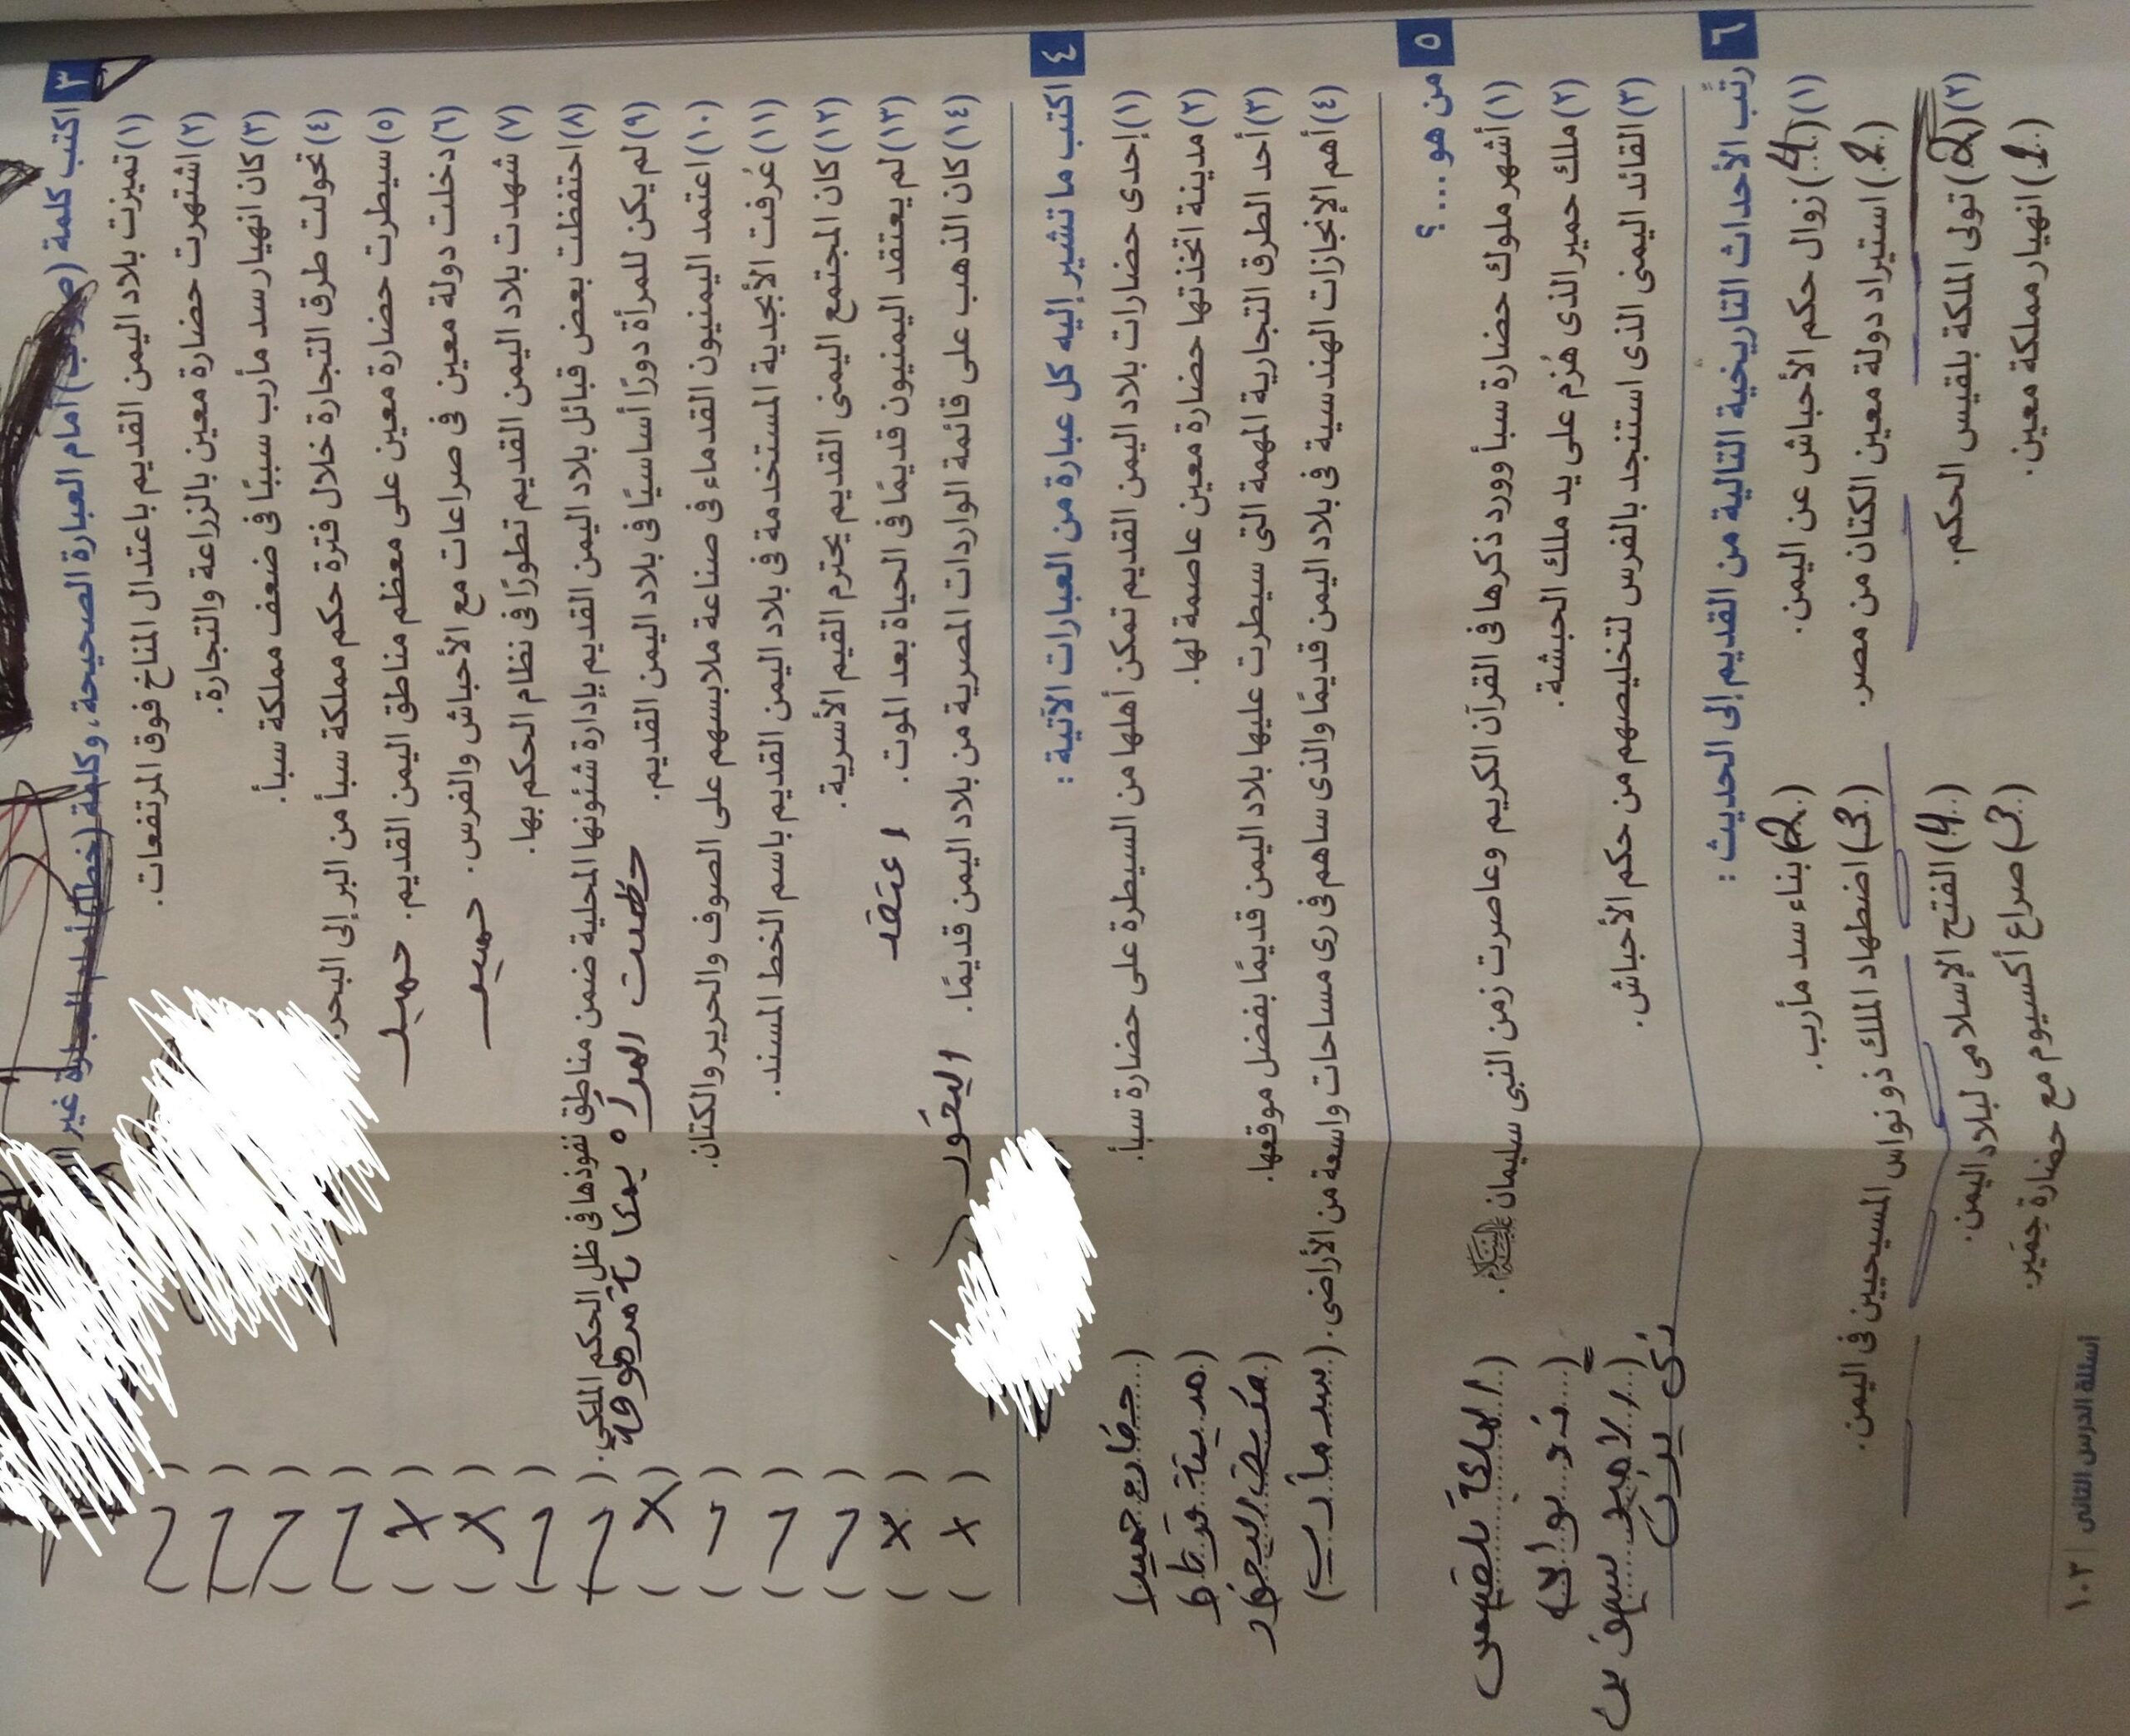 ٣ اكتب كلمة (صواب) أمام العبارة الصحيحة، وكلمة (خطأ) أمام العبارة غير
(١) تميزت بلاد اليمن القديم باعتدال المناخ فوق المرتفعات. ( )
(٢) اشتهرت حضارة معين بالزراعة والتجارة. ( )
(٣) كان انهيار سد مأرب سببًا فى ضعف مملكة سبأ. ( )
(٤) تحولت طرق التجارة خلال فترة حكم مملكة سبأ من البر إلى البحر. ( )
(٥) سيطرت حضارة معين على معظم مناطق اليمن القديم. حمير (X)
(٦) دخلت دولة معين فى صراعات مع الأحباش والفرس. حمير (X)
(٧) شهدت بلاد اليمن القديم تطورًا فى نظام الحكم بها. ( )
(٨) احتفظت بعض قبائل بلاد اليمن القديم بإدارة شئونها المحلية ضمن مناطق نفوذها فى ظل الحكم الملكي. ( )
(٩) لم يكن للمرأة دورًا أساسيًا فى بلاد اليمن القديم. حظيت المرأة بمكانة مرموقة (X)
(١٠) اعتمد اليمنيون القدماء فى صناعة ملابسهم على الصوف والحرير والكتان. ( )
(١١) عُرفت الأبجدية المستخدمة فى بلاد اليمن القديم باسم الخط المسند. ( )
(١٢) كان المجتمع اليمنى القديم يحترم القيم الأسرية. ( )
(١٣) لم يعتقد اليمنيون قديمًا فى الحياة بعد الموت. اعتقد (X)
(١٤) كان الذهب على قائمة الواردات المصرية من بلاد اليمن قديمًا. البخور (X)
٤ اكتب ما تشير إليه كل عبارة من العبارات الآتية :
(١) إحدى حضارات بلاد اليمن القديم تمكن أهلها من السيطرة على حضارة سبأ. (حضارة حمير)
(٢) مدينة اتخذتها حضارة معين عاصمة لها. (مدينة قرناو)
(٣) أحد الطرق التجارية المهمة التى سيطرت عليها بلاد اليمن قديمًا بفضل موقعها. (البخور)
(٤) أهم الإنجازات الهندسية فى بلاد اليمن قديمًا والذى ساهم فى رى مساحات واسعة من الأراضى. (سد مأرب)
٥ من هو ... ؟
(١) أشهر ملوك حضارة سبأ وورد ذكرها فى القرآن الكريم وعاصرت زمن النبى سليمان عليه السلام. (الملكة بلقيس)
(٢) ملك حمير الذى هُزم على يد ملك الحبشة. (ذو نواس)
(٣) القائد اليمنى الذى استنجد بالفرس لتخليصهم من حكم الأحباش. (الامير سيف بن ذى يزن)
٦ رتِّب الأحداث التاريخية التالية من القديم إلى الحديث :
(١) (4) زوال حكم الأحباش عن اليمن. (2) بناء سد مأرب.
(1) استيراد دولة معين الكتان من مصر. (3) اضطهاد الملك ذو نواس المسيحيين فى اليمن.
(٢) (2) تولى الملكة بلقيس الحكم. (4) الفتح الإسلامى لبلاد اليمن.
(1) انهيار مملكة معين. (3) صراع أكسيوم مع حضارة حِمْيَر.
أسئلة الدرس الثانى | ١٠٣